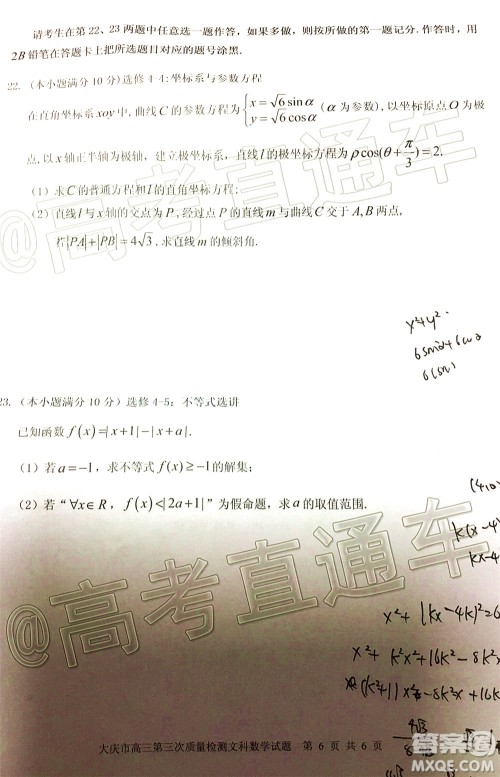 请考生在第 22、23 两题中任意选一题作答，如果多做，则按所做的第一题记分.作答时，用
2B 铅笔在答题卡上把所选题目对应的题号涂黑.
22.（本小题满分 10 分）选修 4-4:坐标系与参数方程
在直角坐标系 xoy 中,曲线 C 的参数方程为{x=√6 sinα y=√6 cosα（α 为参数），以坐标原点 O 为极
点,以 x 轴正半轴为极轴，建立极坐标系,直线 l 的极坐标方程为 ρcos(θ+π/3)=2.
（1）求 C 的普通方程和 l 的直角坐标方程;
（2）直线 l 与 x 轴的交点为 P，经过点 P 的直线 m 与曲线 C 交于 A,B 两点，
若|PA|+|PB|=4√3 ,求直线 m 的倾斜角.
x²+y²=
6sin²α+6cos
6(sin
23.（本小题满分 10 分）选修 4-5：不等式选讲
已知函数 f(x)=|x+1|-|x+a|.
（1）若 a=-1，求不等式 f(x)≥-1 的解集;
（2）若“∀x∈R，f(x)<|2a+1|”为假命题，求 a 的取值范围.
(4,0
k(x-4
kx-4
x²+(kx-4k)²=6
x²+k²x²+16k²-8k²
(k²+1)x²-8k²x
4√3
@高考直通车
@高考直通车
大庆市高三第三次质量检测文科数学试题 第 6 页 共 6 页
答案圈
MXQE.COM